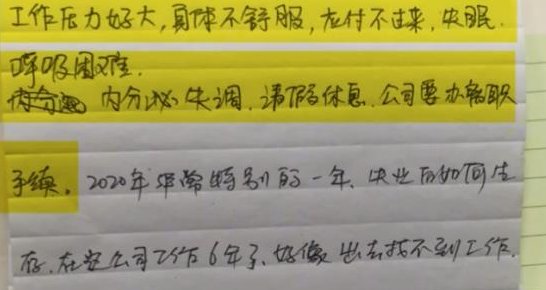 工作压力好大,身体不舒服,应付不过来,失眠.
呼吸困难.
内分泌 内分泌失调.请假休息.公司要办辞职
手续。2020年非常特别的一年、失业后如何生
存.在这公司工作6年了、好像出去找不到工作.